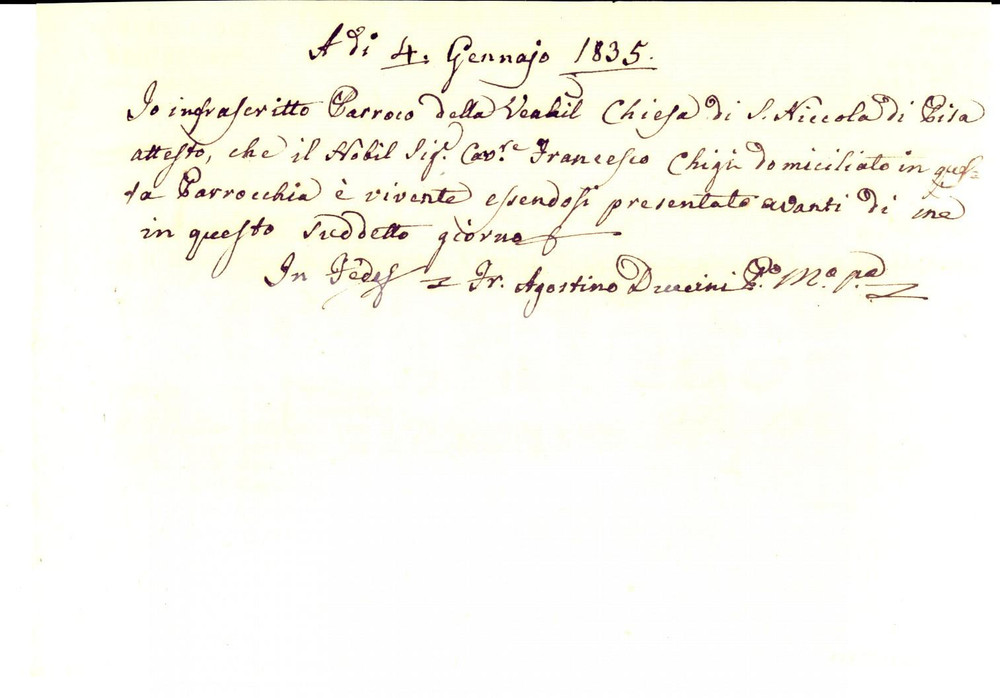 A dì 4. Gennajo 1835.
Io infrascritto Parroco della Venbil Chiesa di S. Niccola di Pisa
attesto, che il Nobil Sig.r Cav.re Francesco Chigi domiciliato in ques=
ta Parrocchia è vivente essendosi presentato avanti di me
in questo suddetto giorno
In Fede Fr. Agostino Duccini P.o M.o p.a